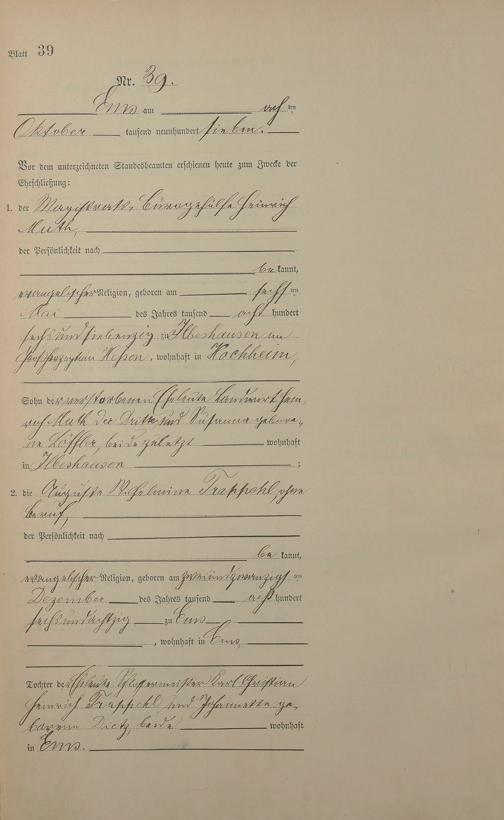 Blatt 39
Nr. 39.
Ems am acht en
Oktober tausend neunhundert sieben.
Vor dem unterzeichneten Standesbeamten erschienen heute zum Zwecke der
Eheschließung:
1. der Magistrats-Bürogehülfe Heinrich
Muth,
der Persönlichkeit nach
be kannt,
evangelischer Religion, geboren am sechs ten
Mai des Jahres tausend acht hundert
sechsundsiebenzig zu Ilbeshausen im
Großherzogtum Hessen, wohnhaft in Hochheim,
Sohn der verstorbenen Eheleute Landwirt Hein-
rich Muth der Dritte und Susanna gebore-
ne Löffler, beide zuletzt wohnhaft
in Ilbeshausen ;
2. die Auguste Wilhelmine, ohne
Beruf,
der Persönlichkeit nach
be kannt,
evangelischer Religion, geboren am zweiundzwanzigs ten
Dezember des Jahres tausend acht hundert
sechsundachtzig zu Ems
, wohnhaft in Ems,
Tochter der Eheleute Karl Christian
Heinrich und Johannette ge-
borene Dietz, beide wohnhaft
in Ems.